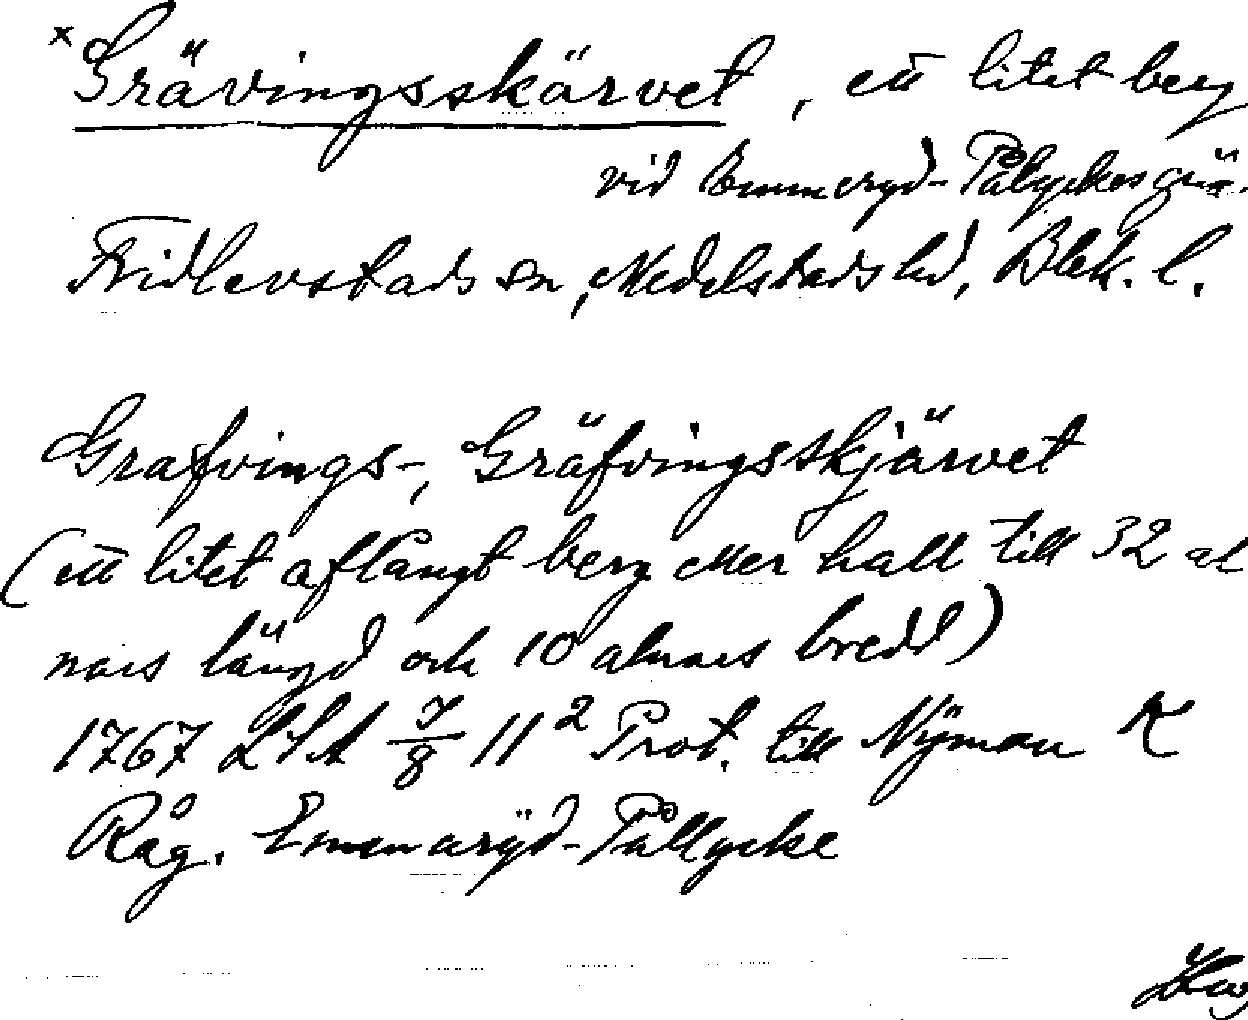 x Grävingsskärvet, ett litet berg
vid Emmeryd-Pålyckes grä.
Fridlevstads sn, Medelstads hd, Blek. l.
Grafvings-, Gräfvingsskjärvet
(ett litet aflångt berg eller hall till 32 al
nars längd och 10 alnars bredd)
1767 LSA 7/8 11² Prot. till Nÿman K
Råg. Emmarÿd-Pållycke